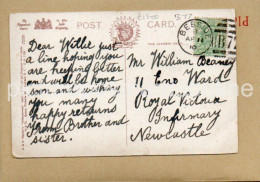 POST CARD
Dear Willie just
a line hoping you
are keeping better
and will be home
soon and wishing
you many
happy returns
from Brother and
sister.
Mr William Beaney
11 Eno Ward
Royal Victoria
Infirmary
Newcastle